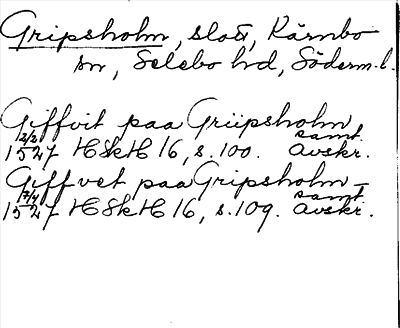 Gripsholm, slott, Kärnbo
sn, Selebo hd, Söderm. l.
Giffvit paa Griipsholm
12/2 1527 HSkH 16, s. 100. samt. avskr.
Geffvet paa Gripsholm –
17/4 1527 HSkH 16, s. 109. samt. avskr.